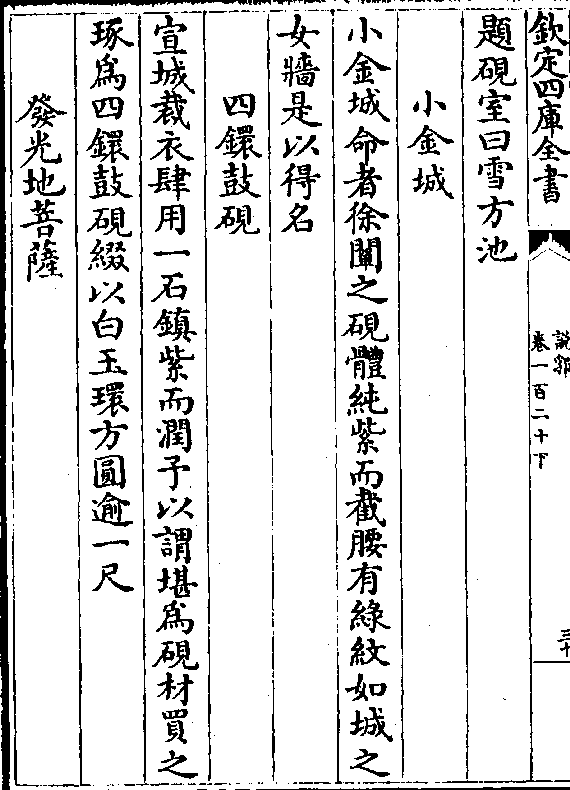 欽定四庫全書
說郛
卷一百二十下
三十
題硯室曰雪方池
小金城
小金城命者徐闡之硯體純紫而截腰有綠紋如城之
女牆是以得名
四鐶鼓硯
宣城裁衣肆用一石鎮紫而潤予以謂堪爲硯材買之
琢爲四鐶鼓硯綴以白玉環方圓逾一尺
發光地菩薩